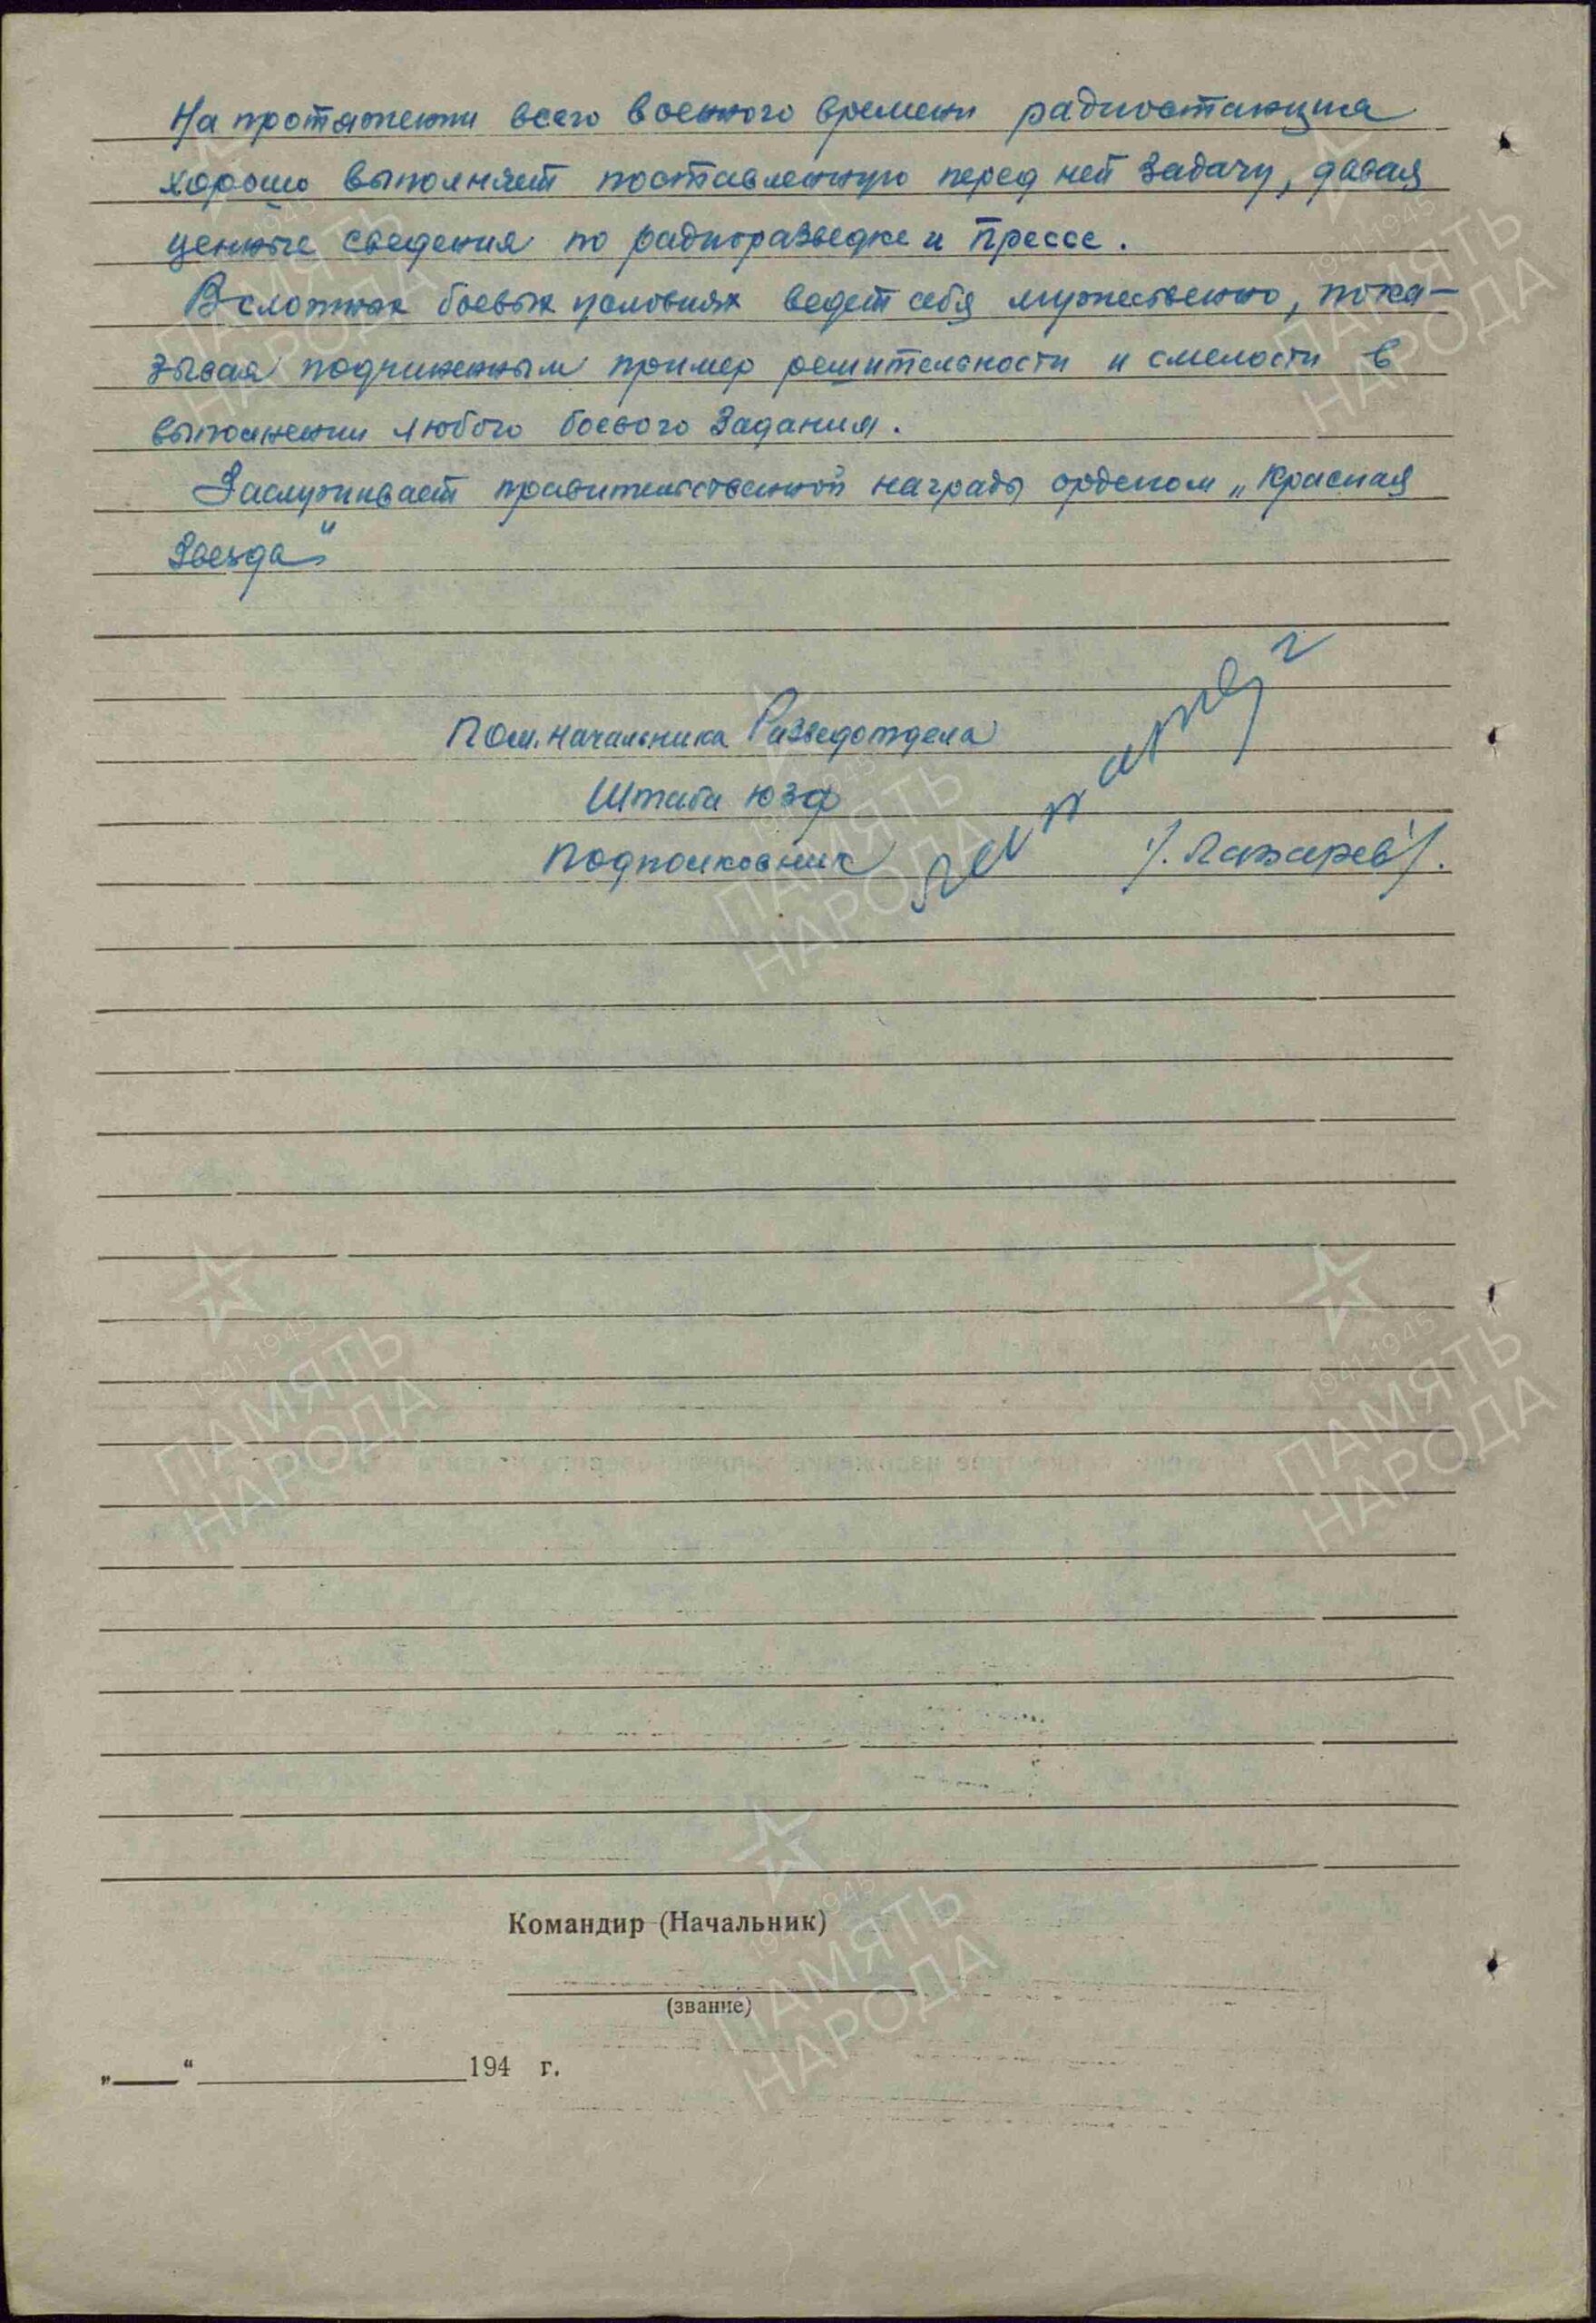 На протяжении всего военного времени радиостанция
хорошо выполняет поставленную перед ней задачу, давая
ценные сведения по радиоразведке и прессе.
В сложных боевых условиях ведет себя мужественно, пока-
зывая подчиненным пример решительности и смелости в
выполнении любого боевого задания.
Заслуживает правительственной награды орденом „Красная
Звезда"
Пом. начальника Разведотдела
Штаба ЮЗФ
Подполковник /. Лазарев /.
Командир (Начальник)
(звание)
„ “ 194 г.
1941-1945
ПАМЯТЬ
НАРОДА